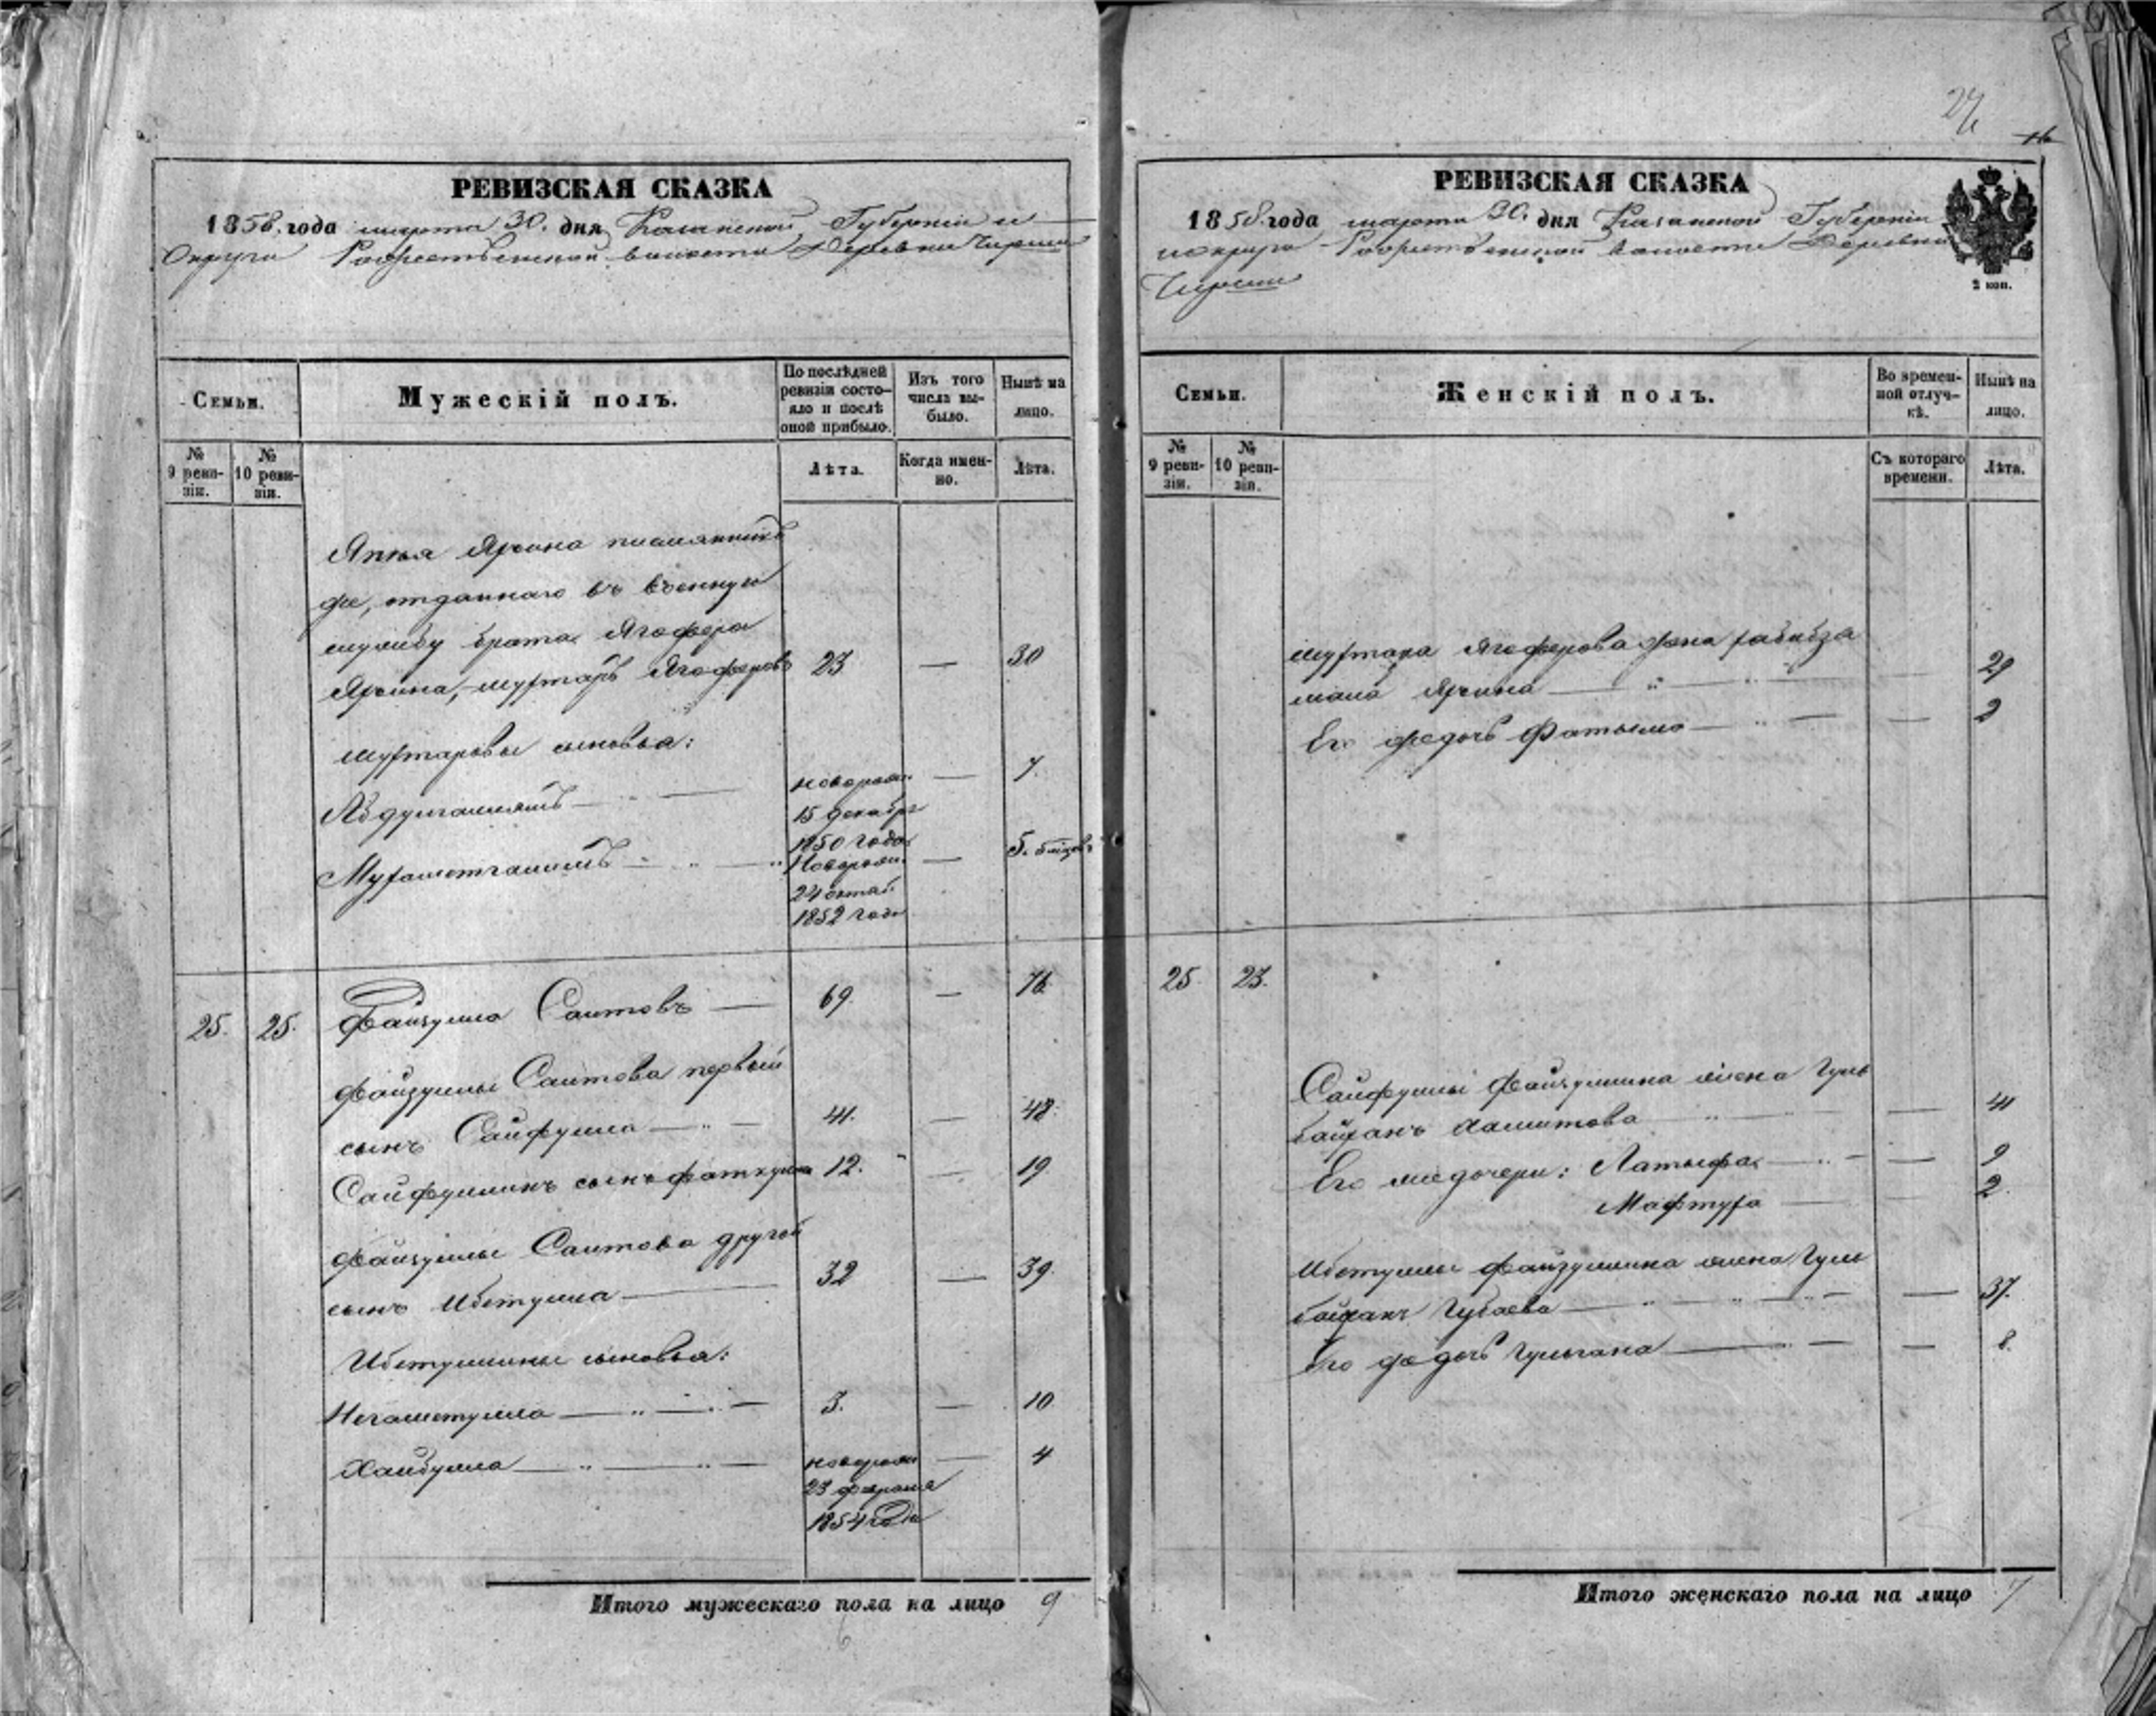 РЕВИЗСКАЯ СКАЗКА
1858. года марта 30. дня Казанской Губерніи и
Округи Рождественской волости Деревни Чирши
Семьи.
Мужескій полъ.
По послѣдней ревизіи состо-
яло и послѣ
оной прибыло.
Изъ того
числа вы-
было.
Нынѣ на
лицо.
№
9 реви-
зіи.
№
10 реви-
зіи.
Лѣта.
Когда имен-
но.
Лѣта.
племянникъ
же, отданнаго въ военную
службу брата Ягофера
Муртазъ Ягоферовъ 23 — 30
сыновья:
новорож. — 7
15 декабр
1850 года
Новорож. — 5.
24 октяб.
1852 года
25. 25. Файзулла Саитовъ — 69. — 76.
Файзуллы Саитова первый
сынъ Сайфулла — 41. — 48.
Сайфуллинъ сынъ Фаткулла 12. — 19
Файзуллы Саитова другой
сынъ Ибетулла — 32 — 39.
Ибетуллины сыновья:
Негаметулла — 3. — 10
Хайбулла — новорож — 4
23 февраля
1854 года
Итого мужескаго пола на лицо 9
6
РЕВИЗСКАЯ СКАЗКА
1858. года марта 30. дня Казанской Губерніи
и округа Рождественской волости Деревни
Чирши
2 коп.
Семьи.
Женскій полъ.
Во времен-
ной отлуч-
кѣ.
Нынѣ на
лицо.
№
9 реви-
зіи.
№
10 реви-
зіи.
Съ котораго
времени.
Лѣта.
Ягоферова жена
29
Его же дочь Фатыма — 2
25 23.
Сайфуллы Файзуллина жена Гуль
Хамитова — 41
Его же дочери: Латыфа — 9
Мафтуха — 2.
Ибетуллы Файзуллина жена Гуль
Губаева — 37.
Его же дочь Гульгана — 8.
Итого женскаго пола на лицо 7